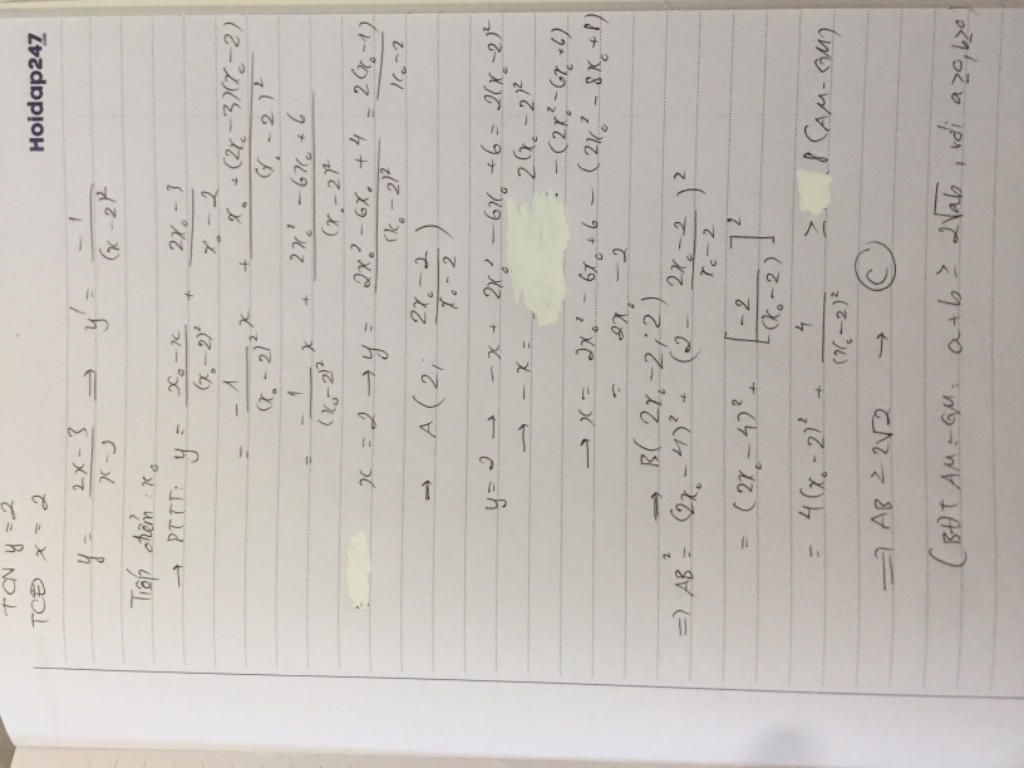 Hoidap247
TCN y = 2
TCĐ x = 2
y = (2x - 3)/(x - 2) ⇒ y' = -1/(x - 2)²
Tiếp điểm: x₀
→ PTTT: y = (x₀ - x)/(x₀ - 2)² + (2x₀ - 3)/(x₀ - 2)
= -1/(x₀ - 2)² x + (x₀ + (2x₀ - 3)(x₀ - 2))/(x₀ - 2)²
= -1/(x₀ - 2)² x + (2x₀² - 6x₀ + 6)/(x₀ - 2)²
x = 2 → y = (2x₀² - 6x₀ + 4)/(x₀ - 2)² = 2(x₀ - 1)/(x₀ - 2)
→ A(2; (2x₀ - 2)/(x₀ - 2))
y = 2 → -x + 2x₀² - 6x₀ + 6 = 2(x₀ - 2)²
→ -x = 2(x₀ - 2)²
- (2x₀² - 6x₀ + 6)
→ x = 2x₀² - 6x₀ + 6 - (2x₀² - 8x₀ + 8)
= 2x₀ - 2
→ B(2x₀ - 2; 2)
⇒ AB² = (2x₀ - 4)² + (2 - (2x₀ - 2)/(x₀ - 2))²
= (2x₀ - 4)² + [-2/(x₀ - 2)]²
= 4(x₀ - 2)² + 4/(x₀ - 2)² ≥ 8 (AM-GM)
⇒ AB ≥ 2√2 → C
(BĐT AM-GM: a + b ≥ 2√ab, với a ≥ 0, b ≥ 0)